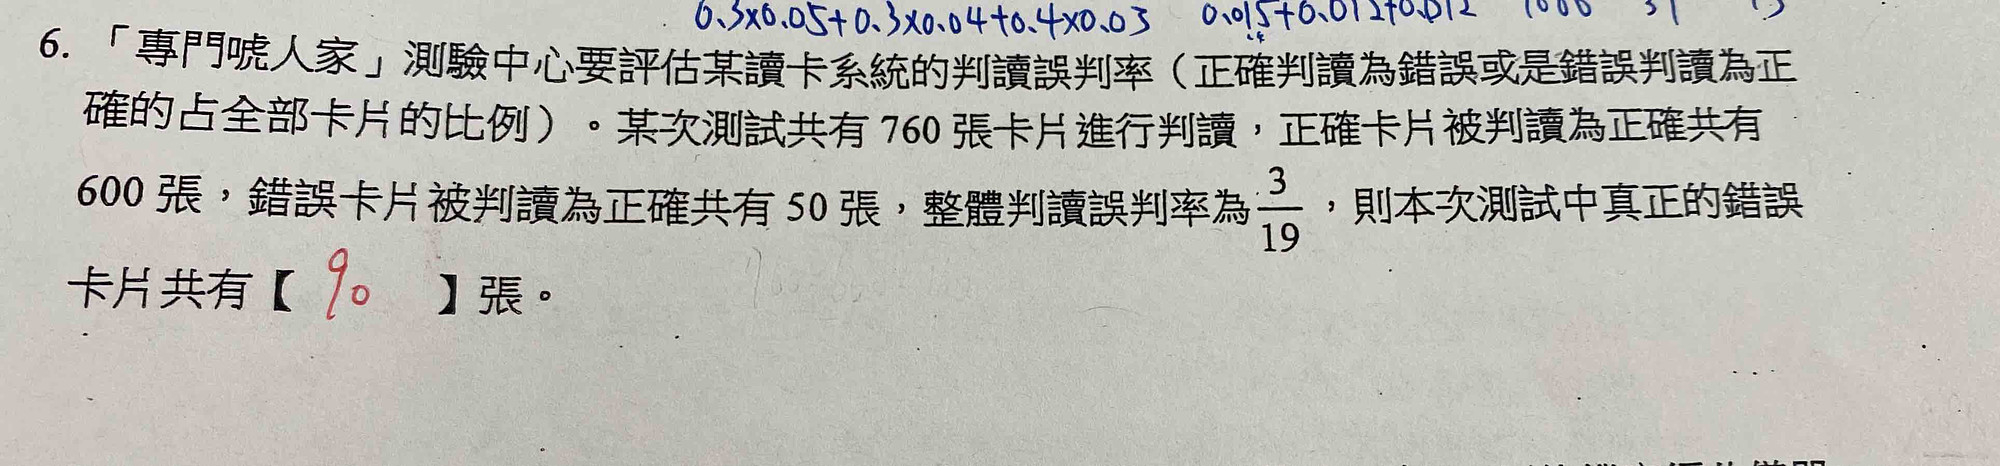 0.3x0.05+0.3x0.04+0.4x0.03 0.015+0.012+0.012
6. 「專門唬人家」測驗中心要評估某讀卡系統的判讀誤判率(正確判讀為錯誤或是錯誤判讀為正
確的占全部卡片的比例)。某次測試共有 760 張卡片進行判讀,正確卡片被判讀為正確共有
600 張,錯誤卡片被判讀為正確共有 50 張,整體判讀誤判率為 3/19 ,則本次測試中真正的錯誤
卡片共有【 90 】張。